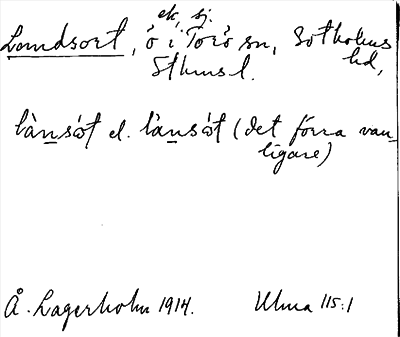 ek, sj.
Landsort, ö i Torö sn, Sotholms
hd,
Sthms l.
là̱nsåt el. là̱nsåt (det förra van-
ligare)
Å. Lagerholm 1914. Ulma 115:1